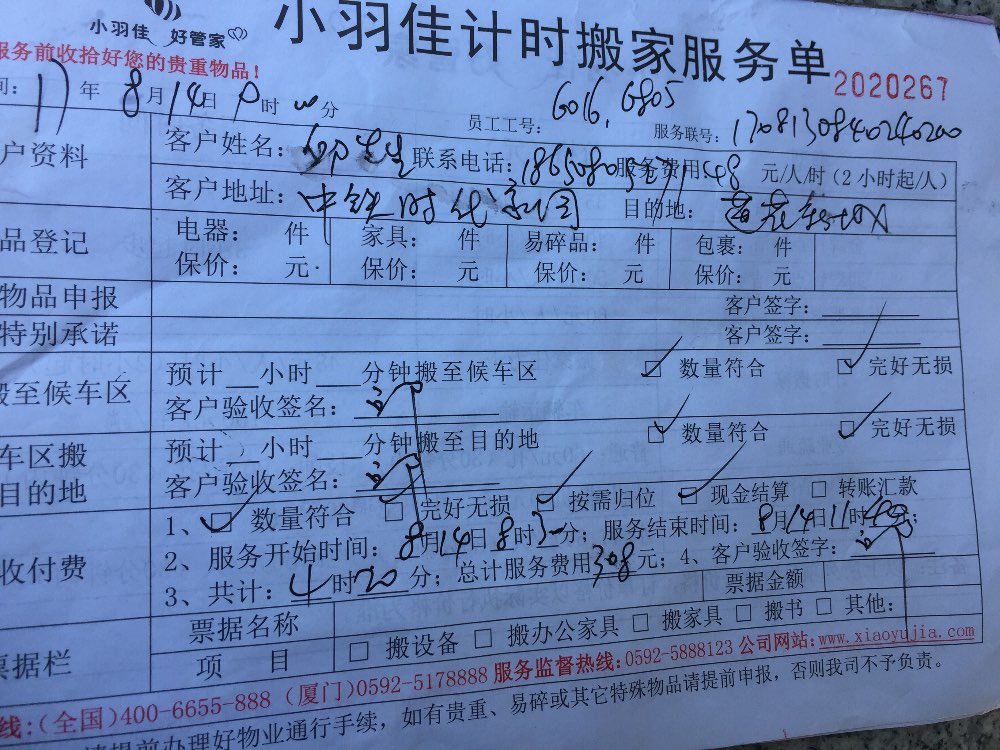 小羽佳 好管家
小羽佳计时搬家服务单
服务前收拾好您的贵重物品！
2020267
间：17年8月14日 时 分 员工工号：6016，6805 服务联号：1708130840240200
户资料 客户姓名： 先生 联系电话： 服务费用：48 元/人/时（2小时起/人）
客户地址：中铁时代 目的地：莲花
品登记 电器： 件 家具： 件 易碎品： 件 包裹： 件
保价： 元 保价： 元 保价： 元 保价： 元
物品申报 客户签字：
特别承诺 客户签字：
搬至候车区 预计 小时 分钟搬至候车区 ☑ 数量符合 ☑ 完好无损
客户验收签名：
车区搬目的地 预计 小时 分钟搬至目的地 ☑ 数量符合 ☑ 完好无损
客户验收签名：
收付费 1、☑ 数量符合 ☑ 完好无损 ☑ 按需归位 ☑ 现金结算 □ 转账汇款
2、服务开始时间：8月14日8时30分；服务结束时间：8月14日11时 ；
3、共计：4时20分；总计服务费用308元；4、客户验收签字：
票据栏 票据名称 票据金额
项 目 □ 搬设备 □ 搬办公家具 □ 搬家具 □ 搬书 □ 其他：
线：（全国）400-6655-888（厦门）0592-5178888 服务监督热线：0592-5888123 公司网站：www.xiaoyujia.com
请提前办理好物业通行手续，如有贵重、易碎或其它特殊物品请提前申报，否则我司不予负责。